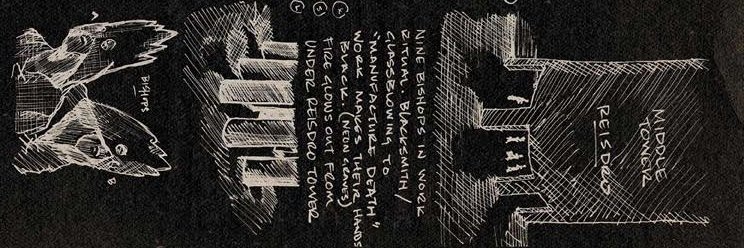 MIDDLE
TOWER
REISDRO
NINE BISHOPS IN WORK
RITUAL. BLACKSMITH/
GLASSBLOWING TO
"MANUFACTURE DEATH"
WORK MAKES THEIR HANDS
BLACK. (NEON GRAVES)
FIRE GLOWS OUT FROM
UNDER REISDRO TOWER
BISHOPS
A
B